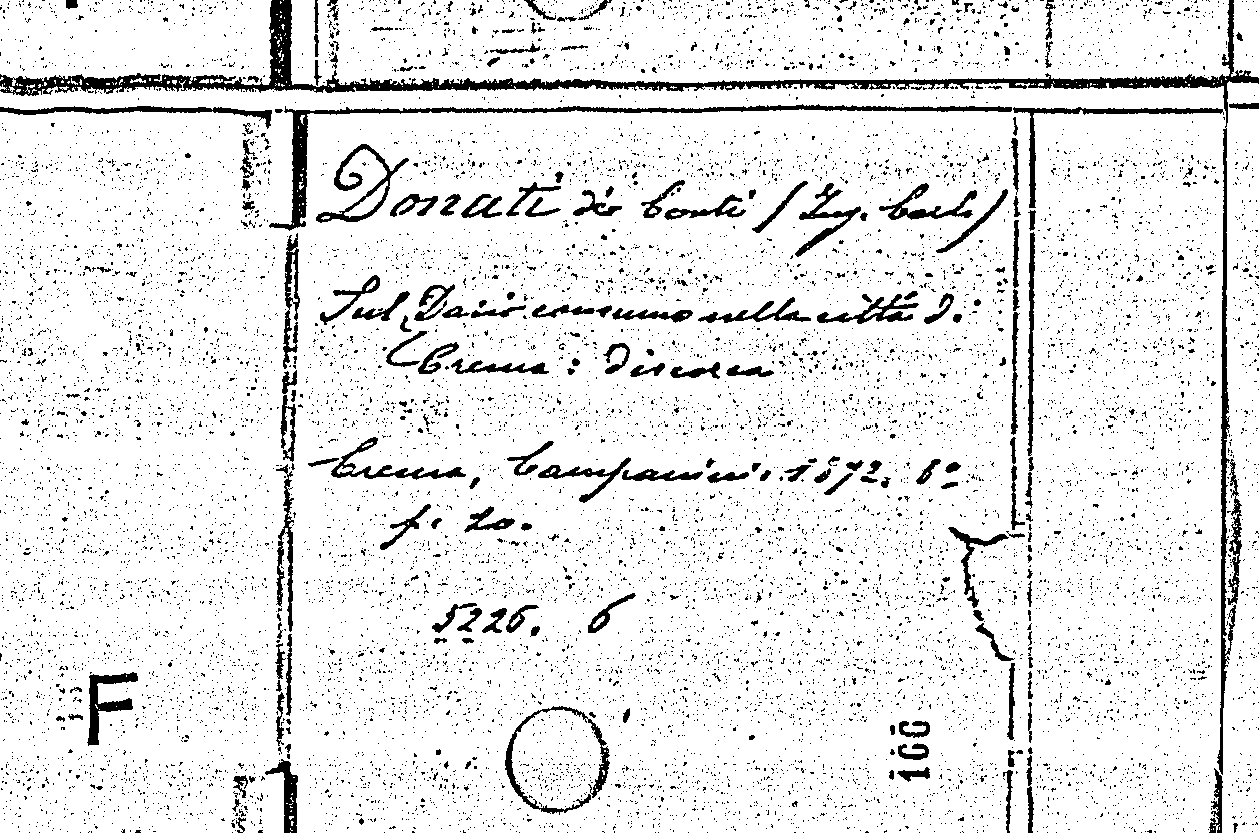 Donati de Conti (Ing. Carlo)
Sul Dazio consumo nella città di
Crema: discorso
Crema, Campanini. 1872. 8º
p. 20.
5226. 6
F
100